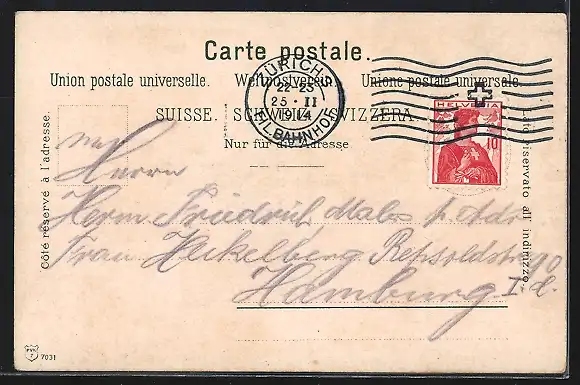 Carte postale.
Union postale universelle. Weltpostverein. Unione postale universale.
SUISSE. SCHWEIZ. SVIZZERA.
Nur für die Adresse
Côté réservé à l'adresse.
Lato riservato all' indirizzo.
ZÜRICH
22-23
25·II
1914
HPL. BAHNHOF
HELVETIA
10
Herrn
Herrn Friedrich
Frau Heckelberg
Hamburg
7031